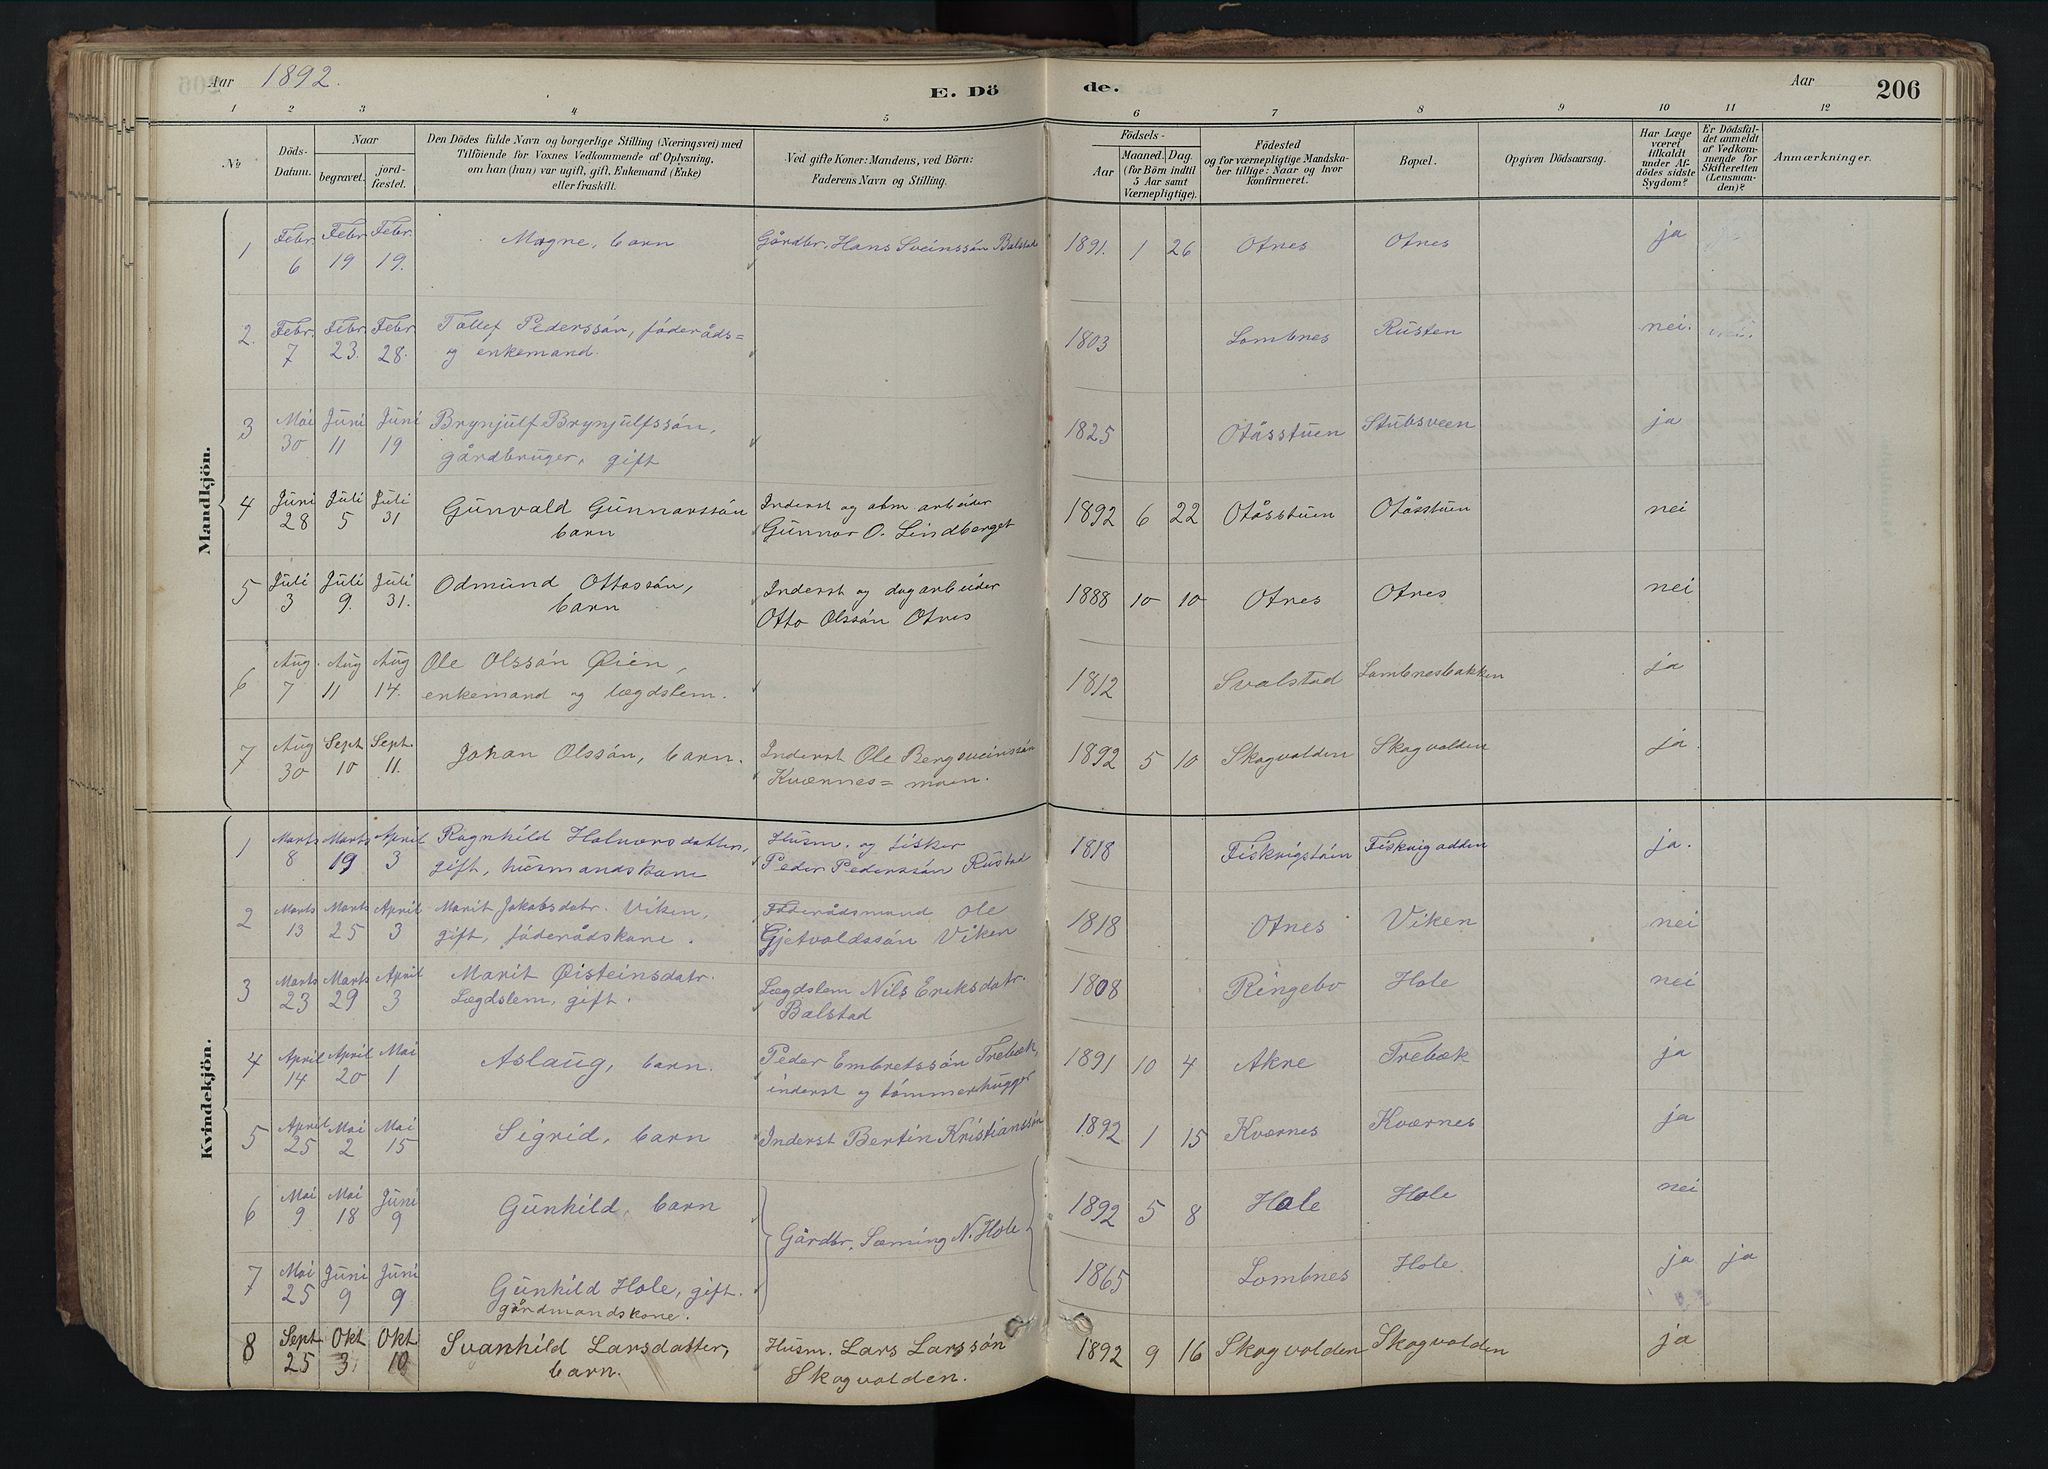 Aar 1892.
E. Dö
de.
Aar
206
1 2 3 4 5 6 7 8 9 10 11 12
No
Döds-Datum.
Naar
begravet.
jord-fæstet.
Den Dödes fulde Navn og borgerlige Stilling (Næringsvei) med
Tilföiende for Voxnes Vedkommende af Oplysning,
om han (hun) var ugift, gift, Enkemand (Enke)
eller fraskilt.
Ved gifte Koner: Mandens, ved Börn:
Faderens Navn og Stilling.
Födsels-
Aar
Maaned. Dag.
(for Börn indtil
5 Aar samt
Værnepligtige).
Födested
og for værnepligtige Mandska-
ber tillige: Naar og hvor
konfirmeret.
Bopæl.
Opgiven Dödsaarsag.
Har Læge
været
tilkaldt
under Af-
dödes sidste
Sygdom?
Er Dödsfal-
det anmeldt
af Vedkom-
mende for
Skifteretten
(Lensman-
den)?
Anmærkninger.
Mandkjön.
1 Febr. 6 Febr 19 Febr. 19. Magne, barn Gårdbr. Hans Sveinssön Balstad 1891. 1 26 Otnes Otnes ja
2. Febr. 7 Febr 23. Febr 28. Tollef Pederssön, föderåds=
og enkemand. 1803 Lombnes Rusten nei. nei.
3 Mai 30 Juni 11 Juni 19 Brynjulf Brynjulfssön,
gårdbruger, gift 1825 Otåsstuen Stubsveen ja
4 Juni 28 Juli 5 Juli 31 Gunvald Gunnarssön
barn Inderst og alm arbeider
Gunnar O. Lindberget 1892 6 22 Otåsstuen Otåsstuen nei
5 Juli 3 Juli 9. Juli 31. Odmund Ottossön,
barn Inderst og dagarbeider
Otto Olssön Otnes 1888 10 10 Otnes Otnes nei
6 Aug. 7 Aug 11 Aug 14. Ole Olssön Öien,
enkemand og lægdslem. 1812 Svalstad Lombnesbakken ja
7 Aug 30 Sept 10 Sept. 11. Johan Olssön, barn. Inderst Ole Bergsveinssön
Kværnes=moen. 1892 5 10 Skogvolden Skogvolden ja.
Kvindekjön.
1 Marts 8 Marts 19 April 3 Ragnhild Halvorsdatter,
gift, husmandskone Husm. og fisker
Peder Pederssön Rustad 1818 Fiskvigstöen Fiskvigodden ja.
2 Marts 13 Marts 25 April 3 Marit Jakobsdatr. Viken,
gift, föderådskone. Föderådsmand Ole
Gjetvoldssön Viken 1818 Otnes Viken nei
3 Marts 23 Marts 29 April 3 Marit Öisteinsdatr.
Lægdslem, gift. Lægdslem Nils Eriksdatr.
Balstad 1808 Ringebo Hole nei
4 April 14 April 20 Mai 1 Aslaug, barn. Peder Embretssön Trebæk,
inderst og tömmerhugger 1891 10 4 Akre Trebæk ja
5 April 25 Mai 2 Mai 15 Sigrid, barn Inderst Bertin Kristianssön 1892 1 15 Kværnes Kværnes ja
6 Mai 9 Mai 18 Juni 9 Gunhild, barn Gårdbr. Sæming N. Hole 1892 5 8 Hole Hole nei
7 Mai 25 Juni 9 Juni 9 Gunhild Hole, gift.
gårdmandskone. 1865 Lombnes Hole ja ja
8 Sept 25 Okt 3 Okt 10 Svanhild Larsdatter,
barn. Husm. Lars Larssön
Skogvolden. 1892 9 16 Skogvolden Skogvolden ja